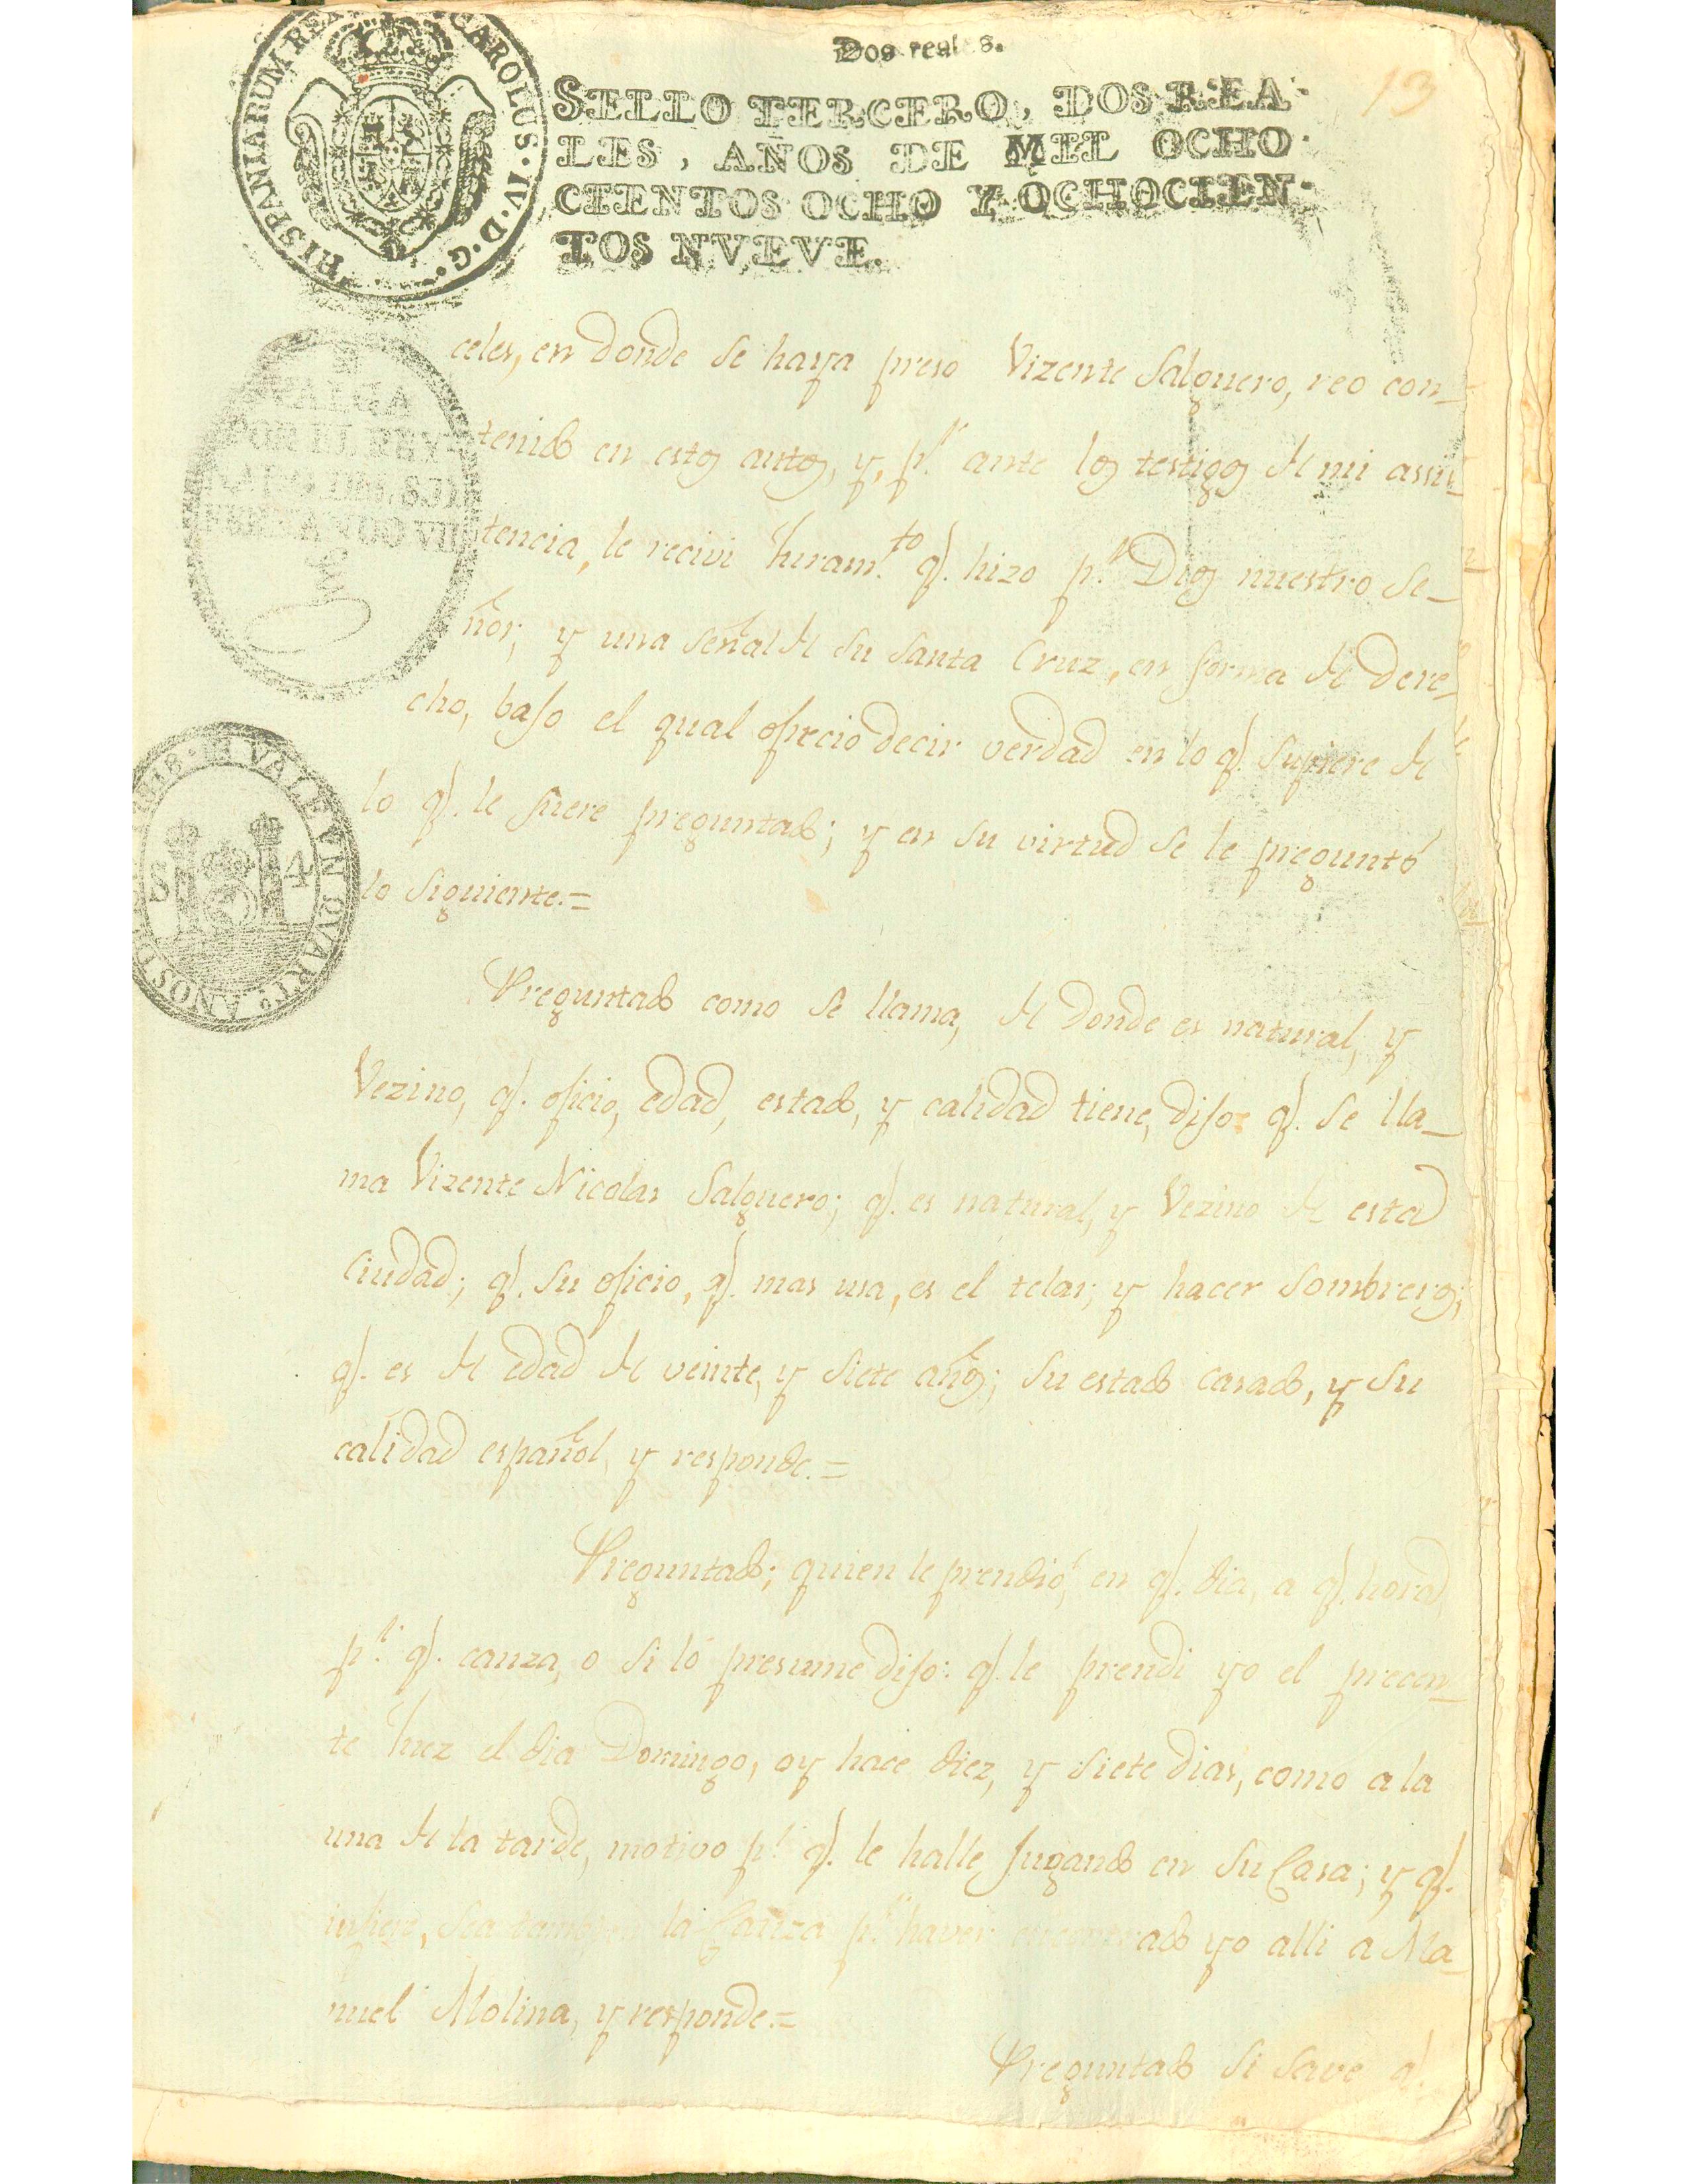 Dos reales.
13
HISPANIARUM REX CAROLUS·IV·D·G·
SELLO TERCERO, DOS REA-
LES, AÑOS DE MIL OCHO-
CIENTOS OCHO Y OCHOCIEN-
TOS NVEVE.
VALGA
POR EL REY
FERNANDO VII
VALE VN QVART.º AÑOS D
S 4
celes, en donde se haya preso Vizente Salguero, reo con-
tenido en estos autos, y, p.r ante los testigos de mi assis-
tencia, le recivi Juram.to q.e hizo p.r Dios nuestro Se-
ñor; y una señal de su Santa Cruz, en forma de dere-
cho, bajo el qual ofrecio decir verdad en lo q.e supiere de
lo q.e le fuere preguntado; y en su virtud se le preguntó
lo siguiente.=
Preguntado como se llama, de donde es natural, y
Vezino, q.e oficio, edad, estado, y calidad tiene, dijo: q.e se lla-
ma Vizente Nicolas Salguero; q.e es natural, y Vezino de esta
Ciudad; q.e su oficio, q.e mas usa, es el telar; y hacer sombreros;
q.e es de edad de veinte, y siete años; su estado casado, y su
calidad español, y responde.=
Preguntado; quien le prendió, en q.e dia, a q.e hora
p.r q.e cauza, o si ló presume dijo: q.e le prendi yo el precen-
te Juez el dia Domingo, oy hace diez, y siete dias, como a la
una de la tarde, motivo p.r q.e le halle Jugando en su Casa; y q.e
infiere, sea tambien la Cauza p.r haver encontrado yo alli a Ma-
nuel Molina, y responde.=
Preguntado si save q.e